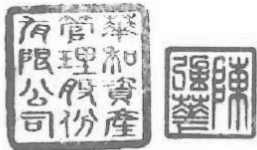 華和資產
管理股份
有限公司
陳
強華